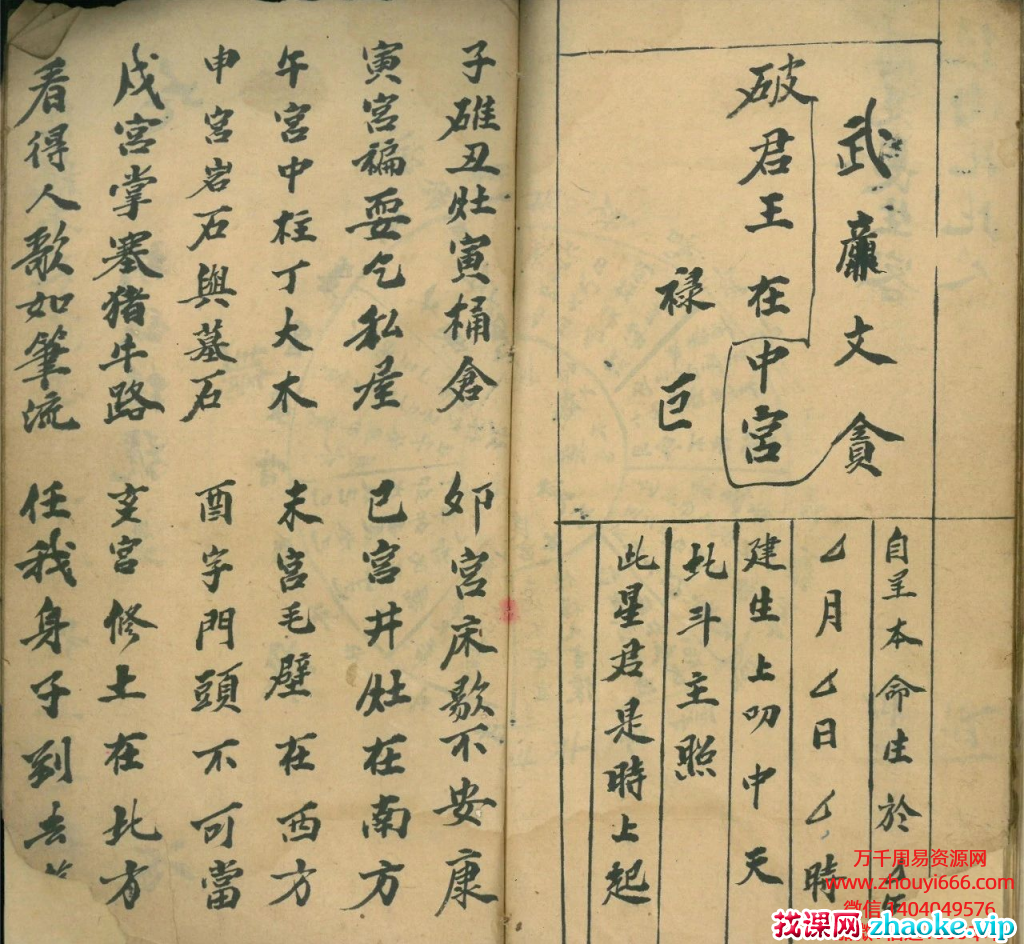 武廉文貪
破君王在中宮
禄巨
自呈本命生於
厶月厶日厶時
建生上叨中天
北斗主照
此星君是時上起
子碓丑灶寅桶倉
卯宮床歇不安康
寅宮
乞私屋
巳宮井灶在南方
午宮中柱丁大木
未宮毛壁在西方
申宮岩石與墓石
酉字門頭不可當
戌宮掌塞猪牛路
亥宮修土在北方
看得人歌如筆流
任我身子到去
万千周易资源网
www.zhouyi666.com
微信1404049576
找课网 zhaoke.vip